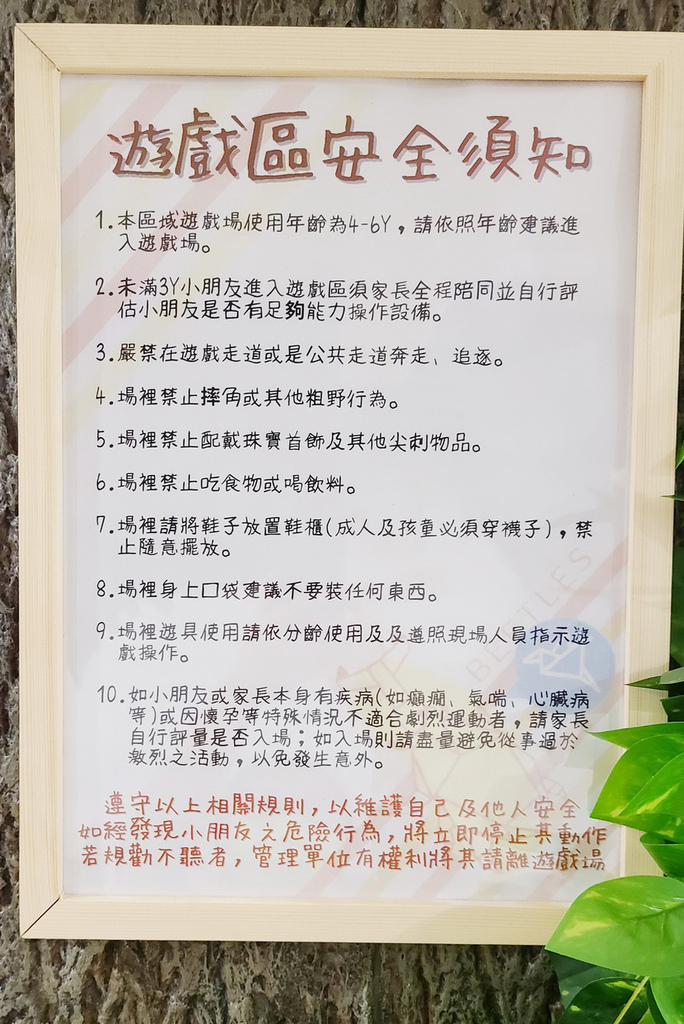 遊戲區安全須知
1.本區域遊戲場使用年齡為4-6Y，請依照年齡建議進
入遊戲場。
2.未滿3Y小朋友進入遊戲區須家長全程陪同並自行評
估小朋友是否有足夠能力操作設備。
3.嚴禁在遊戲走道或是公共走道奔走、追逐。
4.場裡禁止摔角或其他粗野行為。
5.場裡禁止配戴珠寶首飾及其他尖刺物品。
6.場裡禁止吃食物或喝飲料。
7.場裡請將鞋子放置鞋櫃(成人及孩童必須穿襪子)，禁
止隨意擺放。
8.場裡身上口袋建議不要裝任何東西。
9.場裡遊具使用請依分齡使用及及遵照現場人員指示遊
戲操作。
10.如小朋友或家長本身有疾病(如癲癇、氣喘、心臟病
等)或因懷孕等特殊情況不適合劇烈運動者，請家長
自行評量是否入場；如入場則請盡量避免從事過於
激烈之活動，以免發生意外。
遵守以上相關規則，以維護自己及他人安全
如經發現小朋友之危險行為，將立即停止其動作
若規勸不聽者，管理單位有權利將其請離遊戲場
BEETLES